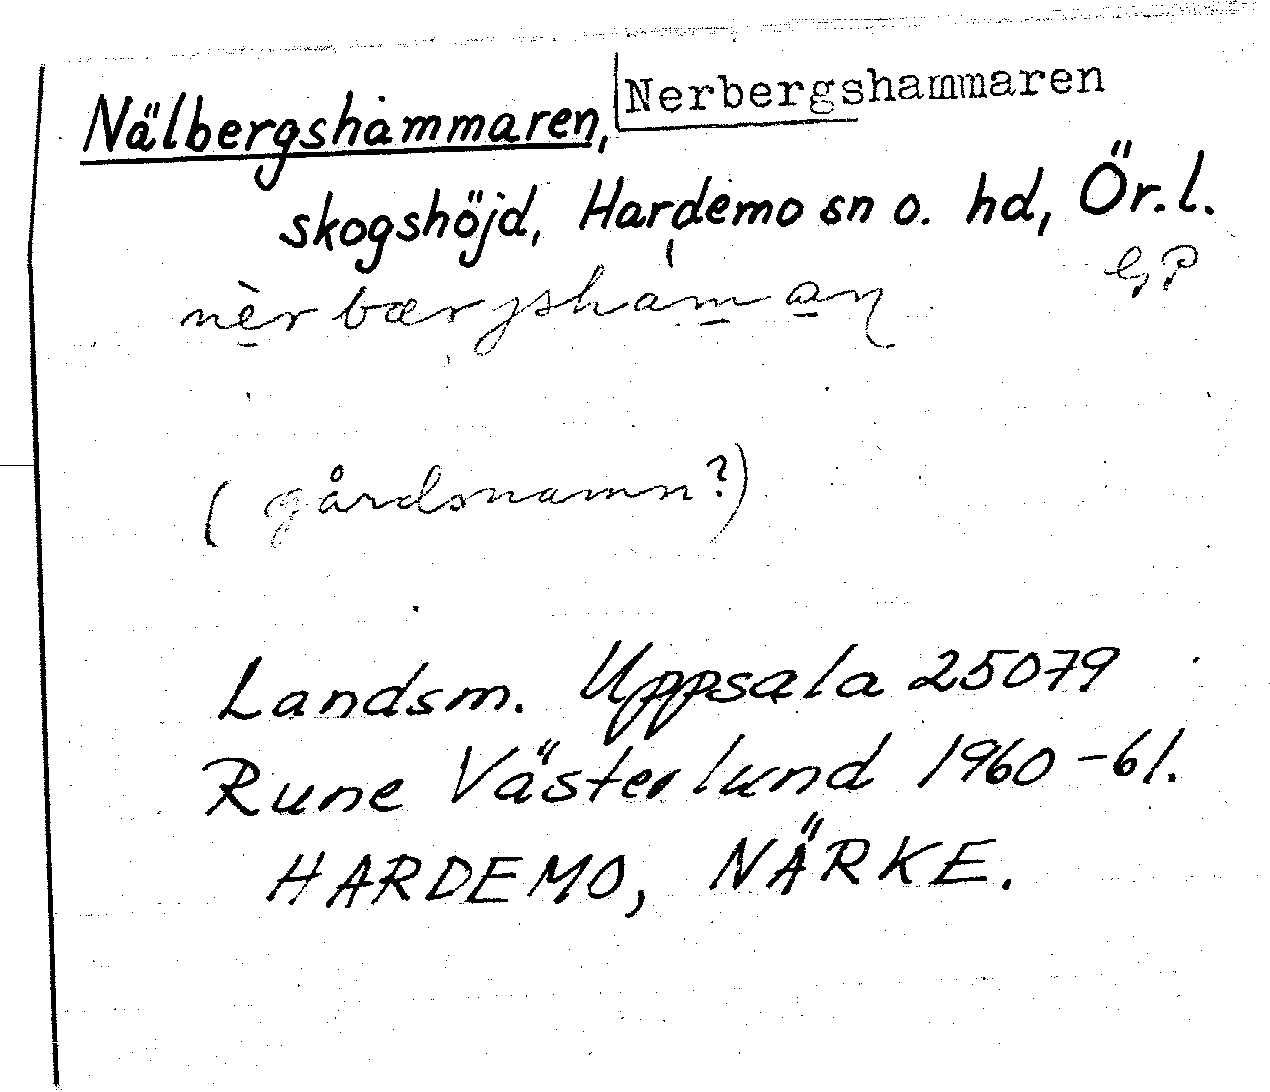 Nälbergshammaren, Nerbergshammaren
skogshöjd, Hardemo sn o. hd, Ör. l.
GP
nèrbærjshàmaɳ
(gårdsnamn?)
Landsm. Uppsala 25079
Rune Västerlund 1960-61.
HARDEMO, NÄRKE.